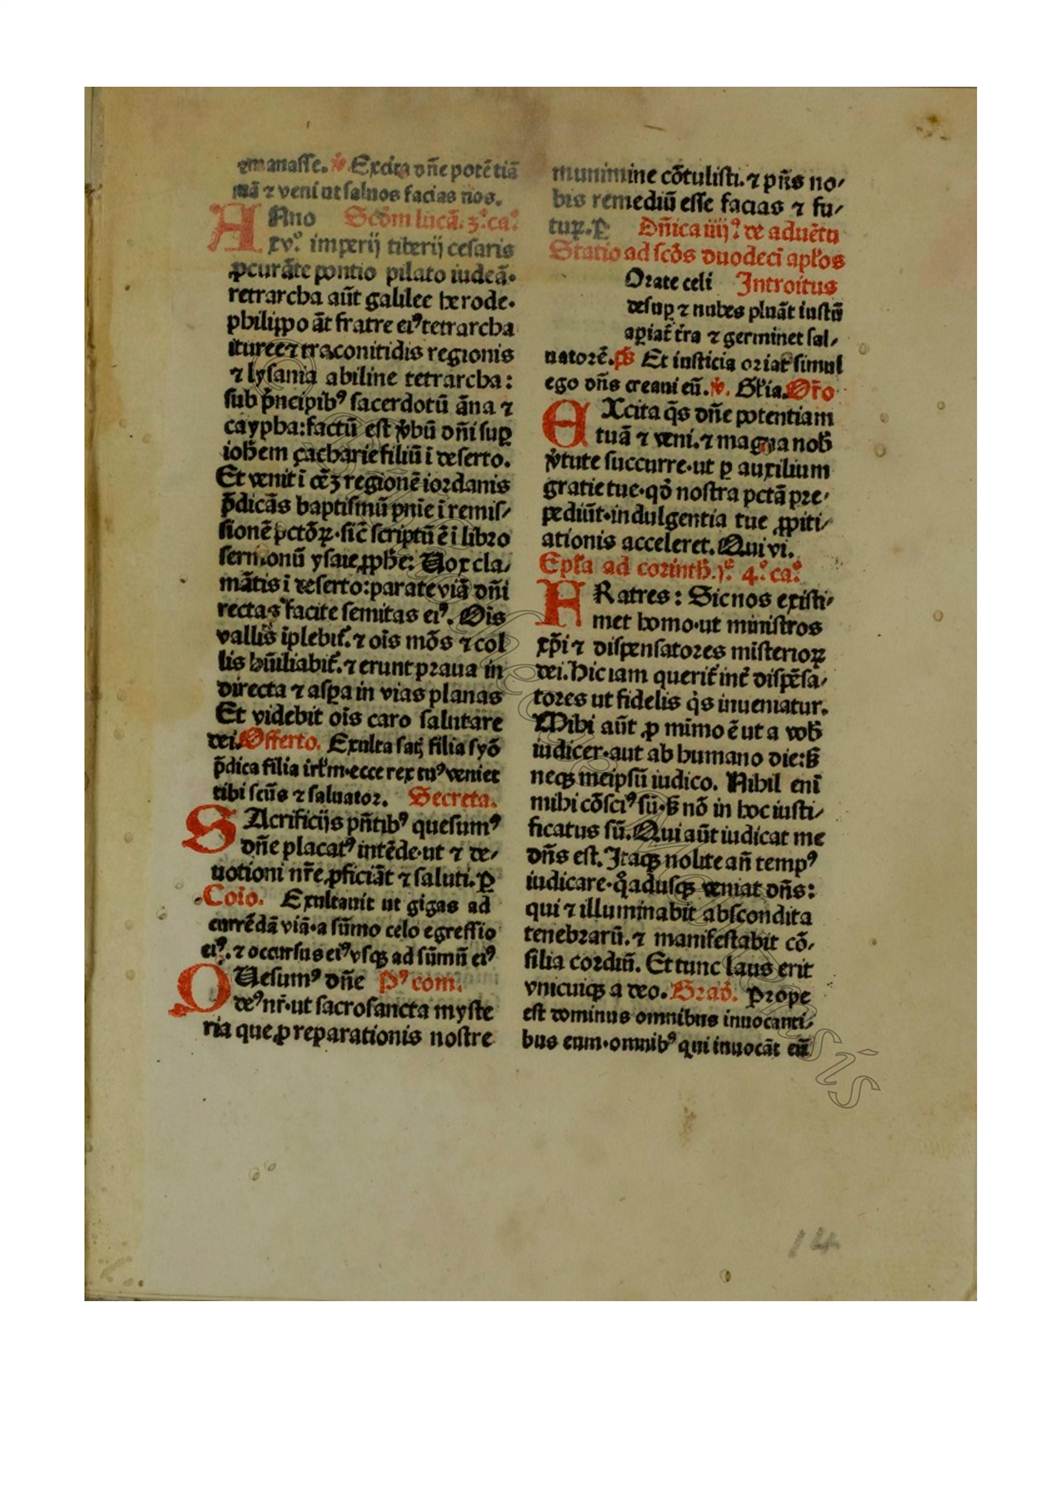 ⁊manasse. ℣ Excita dñe potẽtiã
tuã ⁊ veni ut saluos facias nos.
ANno Scd̃m lucã. 3.º ca.º
xv.º imperij tiberij cesaris
ꝓcurãte pontio pilato iudeã·
tetrarcha aũt galilee herode·
philippo ãt fratre eiꝰ tetrarcha
ituree ⁊ traconitidis regionis
⁊ lysania abiline tetrarcha:
sub p̃ncipibꝰ sacerdotũ ãna ⁊
caypha: factũ est v̓bũ dñi suꝑ
ioh̃em çacharie filiũ ĩ deserto.
Et venit ĩ oẽʒ regionẽ iordanis
p̃dicãs baptismũ pñie ĩ remis⸗
sionẽ pctõꝝ·sic̃ scriptũ ẽ ĩ libro
sermonũ ysaie ꝓph̃e: Uox cla⸗
mãtis ĩ deserto: parate viã dñi
rectas facite semitas eiꝰ. Oĩs
vallis ĩplebit᷑. ⁊ oĩs mõs ⁊ col
lis hũiliabit᷑. ⁊ erunt praua in
directa ⁊ asꝑa in vias planas
Et videbit oĩs caro salutare
dei. Offerto. Exulta satꝭ filia syõ
p̃dica filia irl̃m·ecce rex tuꝰ veniet
tibi scũs ⁊ saluator. Secreta.
SAcrificijs pñtibꝰ quesumꝰ
dñe placatꝰ intẽde·ut ⁊ de⸗
uotioni nr̃e ꝓficiãt ⁊ saluti. ꝑ
Coĩo. Exultauit ut gigas ad
currẽdã viã·a sũmo celo egressio
eiꝰ. ⁊ occursus eiꝰ vsqꝫ ad sũmũ eiꝰ
QUesumꝰ dñe Pꝰ com.
deꝰ nr̃·ut sacrosancta myste
ria que ꝓ reparationis nostre
munimine cõtulisti. ⁊ pñs no⸗
bis remediũ esse facias ⁊ fu⸗
tuꝝ. ꝑ Dñica iiij.ª de aduẽtu
Statio ad scõs duodecĩ apl̃os
Orate celi Introitus
desuꝑ ⁊ nubes pluãt iustũ
aꝑiat᷑ t̃ra ⁊ germinet sal⸗
uatorẽ. ps̃ Et iusticia oriat᷑ simul
ego dñs creaui eũ. ℣. Gl̃ia. Or̃o
EXcita q̃s dñe potentiam
tuã ⁊ veni. ⁊ magna nob̃
v̓tute succurre·ut ꝑ auxilium
gratie tue·qđ nostra pctã pre⸗
pediũt·indulgentia tue ꝓpiti⸗
ationis acceleret. Qui vi.
Epl̃a ad corinth̃. jᵉ. 4.º ca.º
FRatres: Sic nos existi⸗
met homo·ut ministros
xp̃i ⁊ dispensatores misterioꝝ
dei. Hic iam querit᷑ int̓ dispẽsa⸗
tores ut fidelis q̃s inueniatur.
Mihi aũt ꝓ mimo ẽ ut a vob̃
iudicer·aut ab humano die: s̃
neqꝫ meipsũ iudico. Nihil enĩ
mihi cõsciꝰ sũ·s̃ nõ in hoc iusti⸗
ficatus sũ. Qui aũt iudicat me
dñs est. Itaqꝫ nolite añ tempꝰ
iudicare·q̃adusqꝫ veniat dñs:
qui ⁊ illuminabit abscondita
tenebrarũ. ⁊ manifestabit cõ⸗
silia cordiũ. Et tunc laus erit
vnicuiqꝫ a deo. Grad̃. Prope
est dominus omnibus inuocanti⸗
bus eum·omnibꝰ qui inuocãt eũ
14